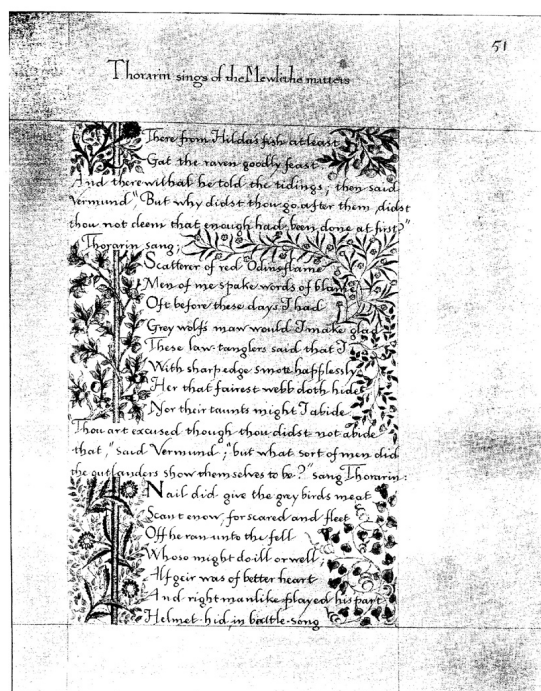 51
Thorarin sings of the Mewlithe matters
There from Hildas fish at least
Gat the raven goodly feast
And there withal he told the tidings; then said
Vermund, "But why didst thou go after them, didst
thou not deem that enough had been done at first?"
Thorarin sang;
Scatterer of red Odinsflame
Men of me spake words of blame
Oft before these days I had
Grey wolf's maw would I make glad
These law-tanglers said that I
With sharp edge smote happlessly
Her that fairest webb doth hide
Nor their taunts might I abide
Thou art excused though thou didst not abide
that," said Vermund; "but what sort of men did
the outlanders show themselves to be?" sang Thorarin:
Nail did give the gray birds meat
Scant enow, for scared and fleet
Off he ran unto the fell
Whoso might do ill or well;
Alfgeir was of better heart
And right manlike played his part
Helmet-hid, in battle-song